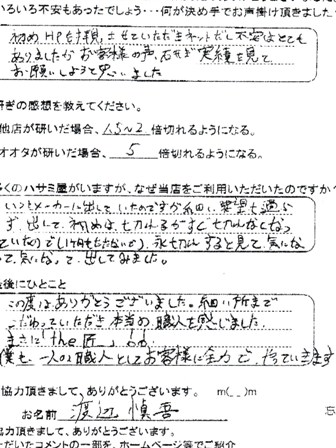 いろいろ不安もあったでしょう・・何が決め手でお声掛け頂きました
初め HPを拝見させていただきネットだし不安はとても
ありましたがお客様の声、石せず 実績を見て
お願いしようと思いました
研ぎの感想を教えてください。
他店が研いだ場合、1.5～2 倍切れるようになる。
オオタが研いだ場合、 5 倍切れるようになる。
多くのハサミ屋がいますが、なぜ当店をご利用いただいたのですか
いつもメーカーに出していたのですが
ず、出して、初めは、切れるがすぐ切れんなくなっ
ていたので 永切れすると見て、気にな
って、気になって、出してみました。
最後にひとこと
この度はありがとうございました。細い所まで
こだわっていただき本当の職人を感じました。
まさに「the 匠」
僕も一人の職人としてお客様に全力で
協力頂きまして、ありがとうございます。 m(__)m
お名前 渡辺 慎吾
協力頂きまして、ありがとうございます。
ただいたコメントの一部を、ホームページ等でご紹介